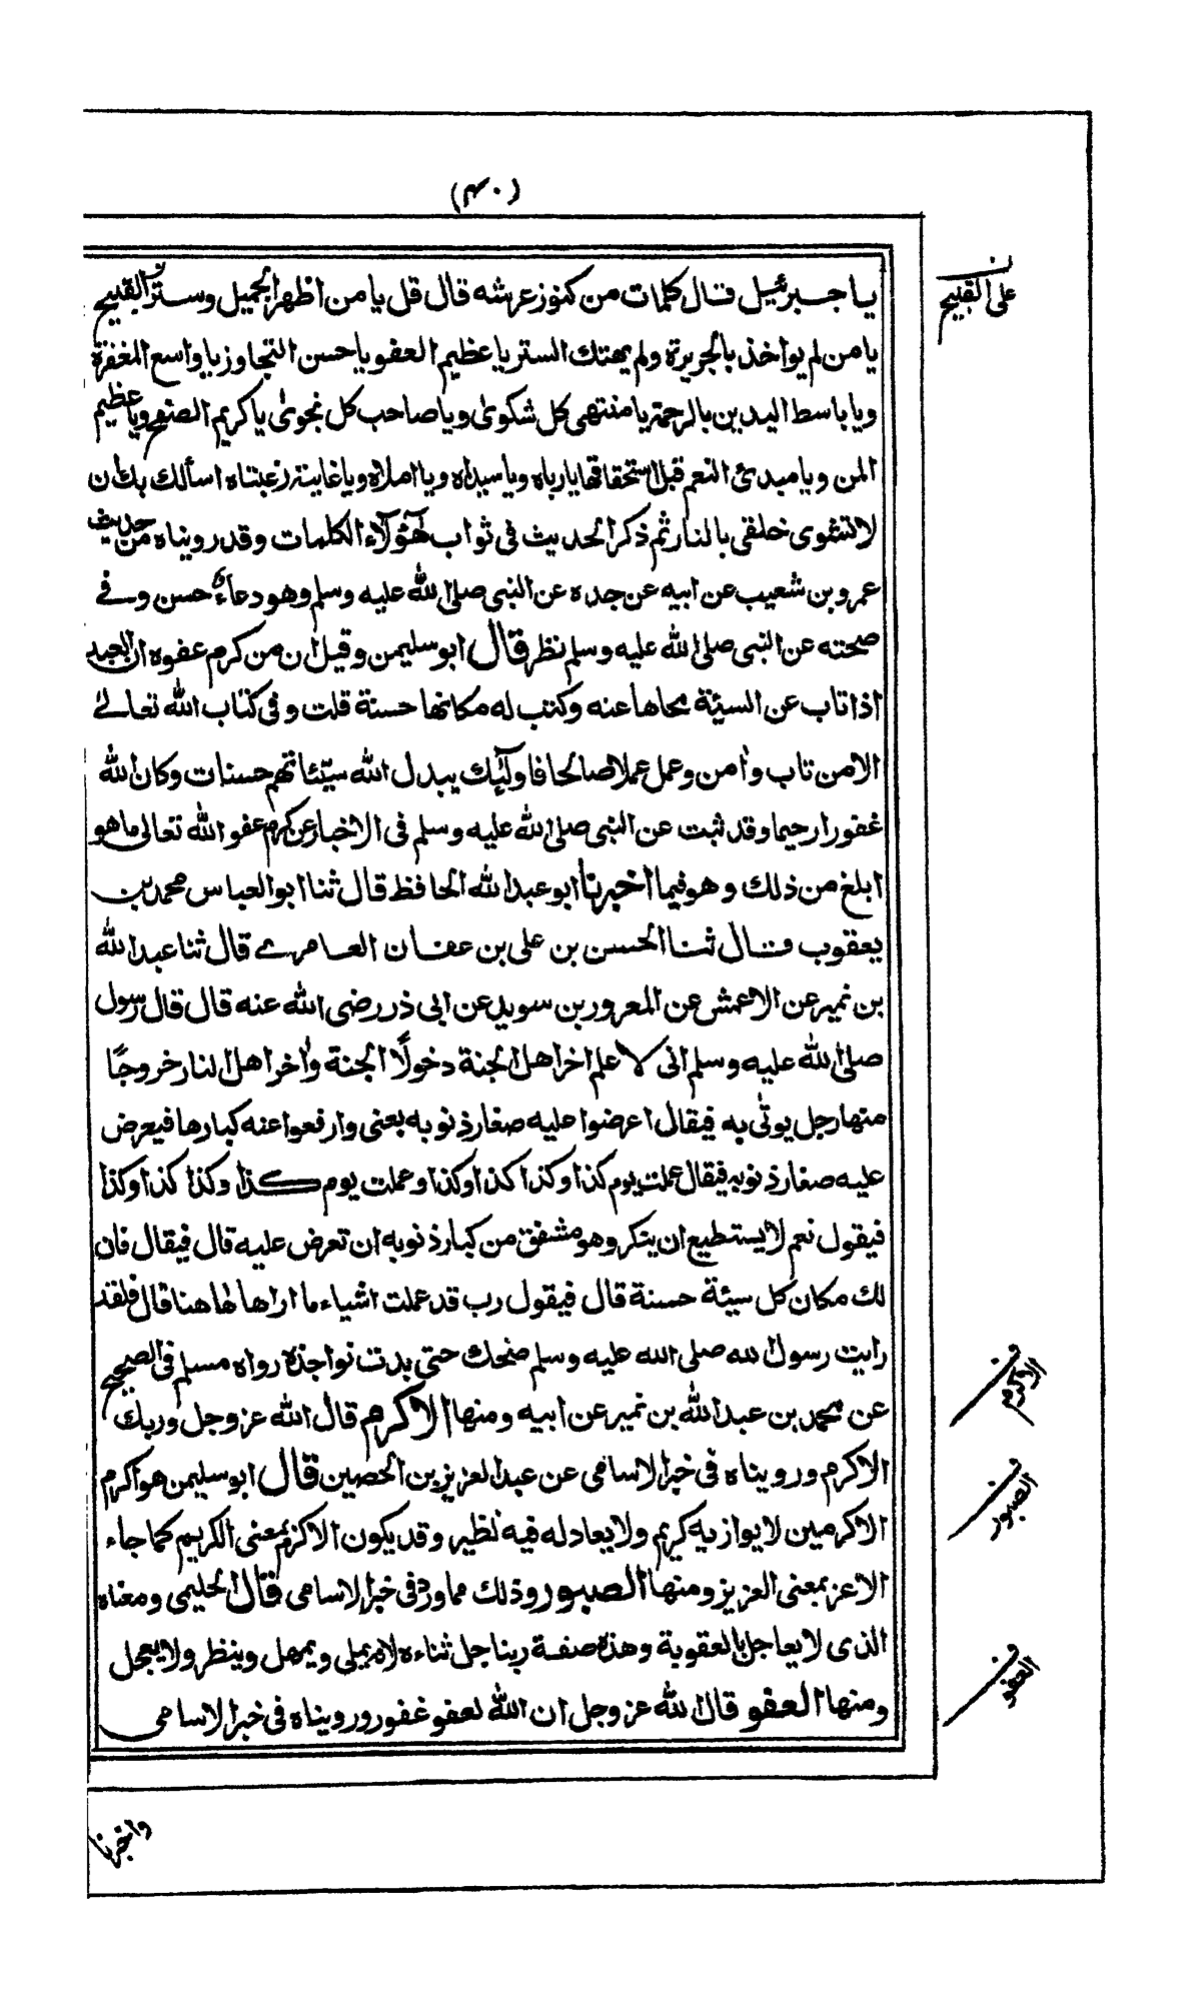 (٤٠)
يا جبرئيل قال كلمات من كنوز عرشه قال قل يا من اظهر الجميل وستر القبيح
ن
على القبيح
يا من لم يواخذ بالجريرة ولم يهتك الستر يا عظيم العفو يا حسن التجاوز يا واسع المغفرة
ويا باسط اليدين بالرحمة يا منتهى كل شكوى ويا صاحب كل نجوى يا كريم الصفح ويا عظيم
المن ويا مبدئ النعم قبل استحقاقها يا رباه ويا سيداه ويا املاه ويا غاية رغبتاه اسألك بك ان
لا تشوى خلقى بالنار ثم ذكر الحديث فى ثواب هٰؤلآء الكلمات وقد رويناه من حديث
عمرو بن شعيب عن ابيه عن جده عن النبى صلى الله عليه وسلم وهو دعاءٌ حسن وفے
صحته عن النبى صلى الله عليه وسلم نظر قال ابو سليمن وقيل ان من كرم عفوه ان العبد
اذا تاب عن السيئة محاها عنه وكتب له مكانها حسنة قلت وفى كتاب الله تعالىٰ
الا من تاب واٰمن وعمل عملا صالحا فاولٰٓئك يبدل الله سيّئاتهم حسنات وكان الله
غفورا رحيما وقد ثبت عن النبى صلى الله عليه وسلم فى الاخبار عن كرم عفو الله تعالى ما هو
ابلغ من ذلك وهو فيما اخبرنا ابو عبد الله الحافظ قال ثنا ابو العباس محمد بن
يعقوب قال ثنا الحسن بن على بن عفان العامرے قال ثنا عبد الله
بن نمير عن الاعمش عن المعرور بن سويد عن ابى ذر رضى الله عنه قال قال رسول
صلى الله عليه وسلم انى لا علم اخر اهل الجنة دخولًا الجنة واٰخر اهل النار خروجًا
منها رجل يوتٰى به فيقال اعرضوا عليه صغار ذنوبه يعنى وارفعوا عنه كبارها فيعرض
عليه صغار ذنوبه فيقال عملت يوم كذا وكذا كذا وكذا وعملت يوم كذا وكذا كذا وكذا
فيقول نعم لا يستطيع ان ينكر وهو مشفق من كبار ذنوبه ان تعرض عليه قال فيقال فان
لك مكان كل سيئة حسنة قال فيقول رب قد عملت اشياء ما اراها هٰا هنا قال فلقد
رايت رسول لله صلى الله عليه وسلم ضحك حتى بدت نواجذه رواه مسلم فى الصحيح
عن محمد بن عبد الله بن نمير عن ابيه ومنها الاكرم قال الله عز وجل وربك
الاكرم
الاكرم ورويناه فى خبر الاسامى عن عبد العزيز بن الحصين قال ابو سليمن هو اكرم
الاكرمين لا يوازيه كريم ولا يعادله فيه نظير وقد يكون الاكرم بمعنى الكريم كما جاء
الصبور
الاعز بمعنى العزيز ومنها الصبور وذلك مما ورد فى خبر الاسامى قال الحليمى ومعناه
الذى لا يعاجل بالعقوبة وهذه صفة ربنا جل ثناءه لانه يملى ويمهل وينظر ولا يعجل
العفو
ومنها العفو قال الله عز وجل ان الله لعفو غفور ورويناه فى خبر الاسامى
واخبرنا